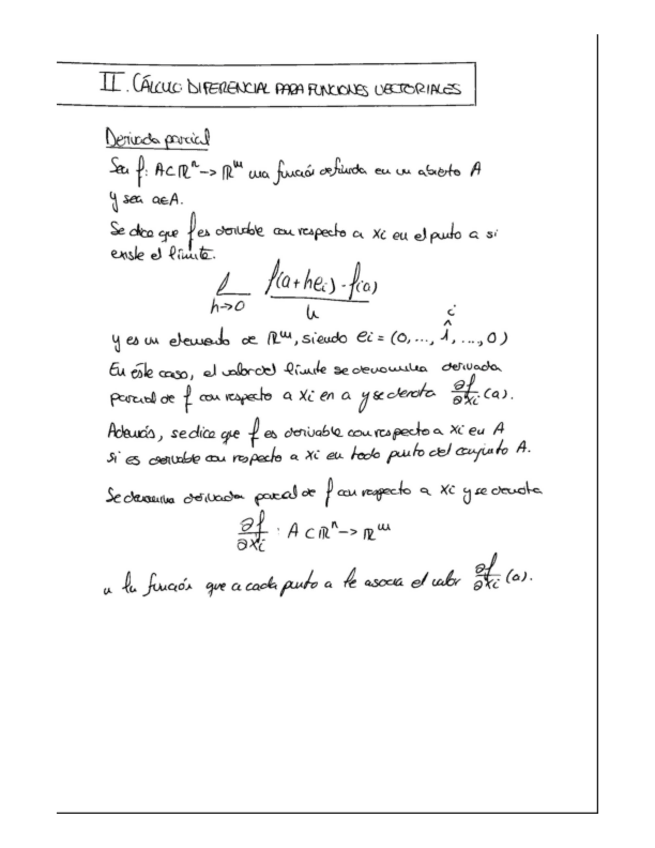 II. CÁLCULO DIFERENCIAL PARA FUNCIONES VECTORIALES
Derivada parcial
Sea f: A⊂ℝⁿ -> ℝᵐ una función definida en un abierto A
y sea a∈A.
Se dice que f es derivable con respecto a xi en el punto a si
existe el límite.
l f(a+hei) - f(a)
h->0 h
i
y es un elemento de ℝᵐ, siendo ei = (0, ..., 1, ..., 0)
En éste caso, el valor del límite se denomina derivada
parcial de f con respecto a xi en a y se denota ∂f/∂xi (a).
Además, se dice que f es derivable con respecto a xi en A
si es derivable con respecto a xi en todo punto del conjunto A.
Se denomina derivada parcial de f con respecto a xi y se denota
∂f/∂xi : A⊂ℝⁿ -> ℝᵐ
a la función que a cada punto a le asocia el valor ∂f/∂xi (a).